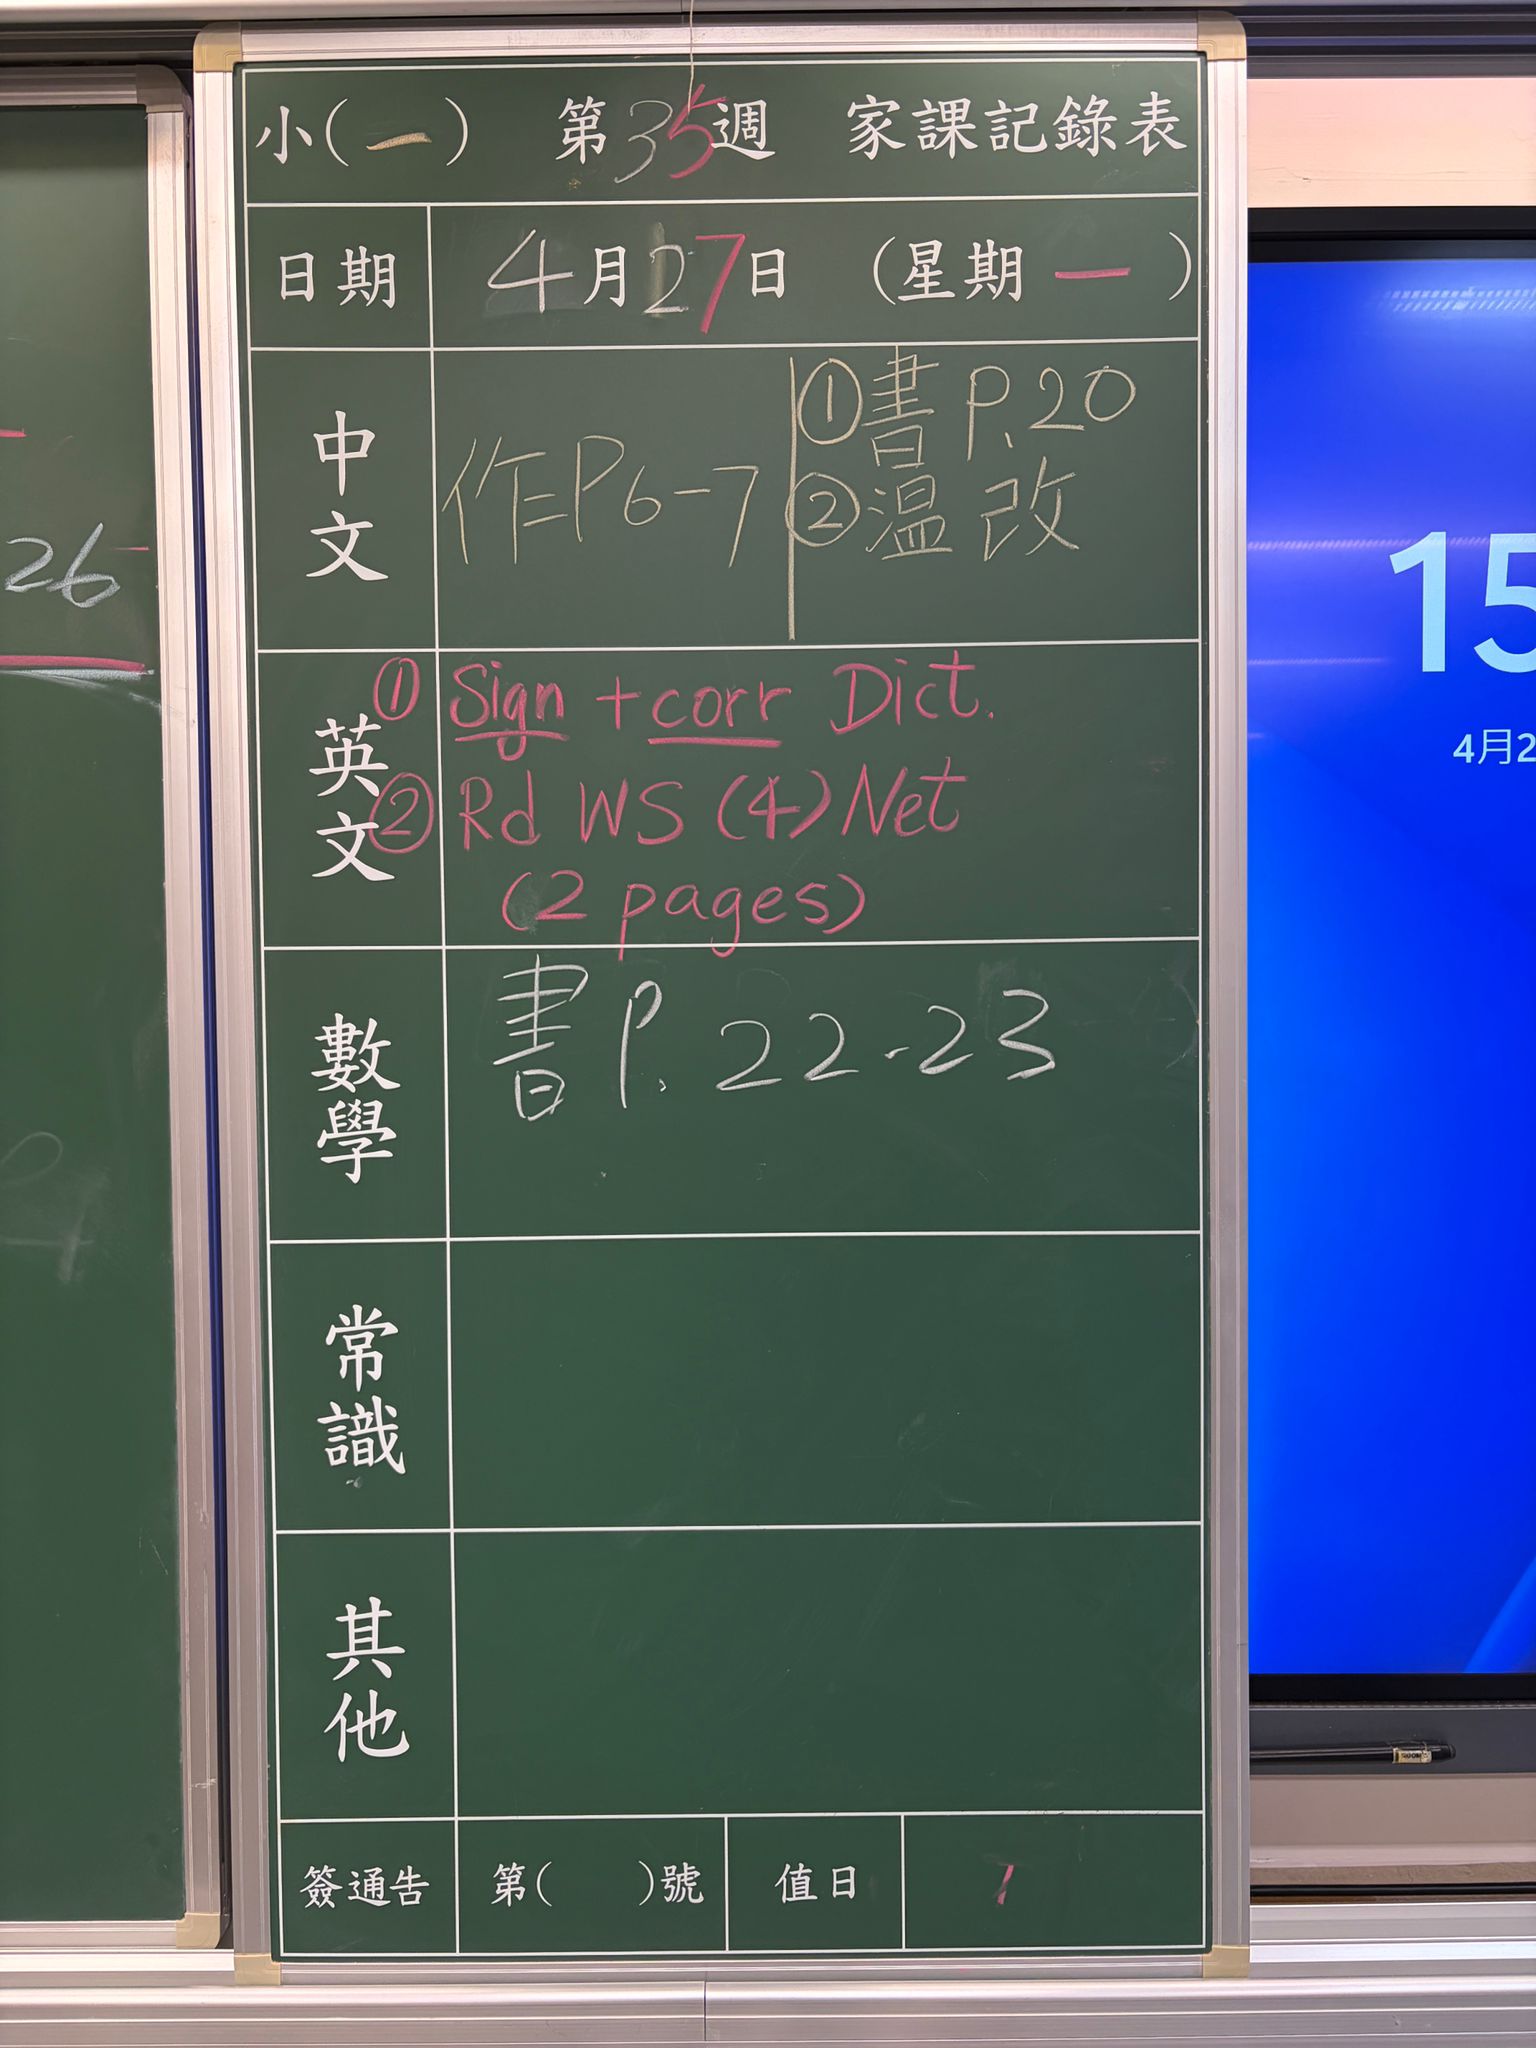 小(一) 第35週 家課記錄表
日期 4月27日 (星期一)
中文
作二P6-7
①書P.20
②温改
英文
① Sign + corr Dict.
② Rd WS (4) Net
(2 pages)
數學
書P.22-23
常識
其他
簽通告 第( )號 值日 1
26
15
4月2